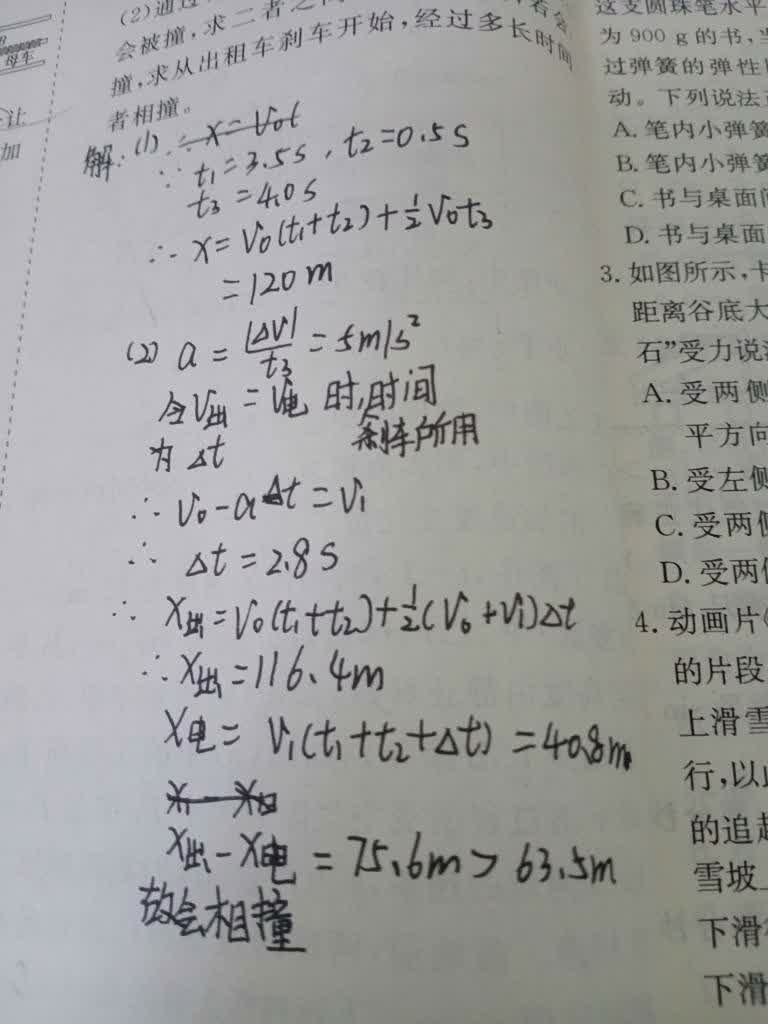 (2)通过
会被撞,求二者之间
撞,求从出租车刹车开始,经过多长时间
者相撞。
母车
让
加
解:(1) ∵ x=V₀t
∵ t₁=3.5s,t₂=0.5s
t₃=4.0s
∴ x=V₀(t₁+t₂)+½V₀t₃
=120m
(2) a=|ΔV|/t₃=5m/s²
令V出=V电 时,时间
刹车所用
为Δt
∴ V₀-aΔt=V₁
∴ Δt=2.8s
∴ X出=V₀(t₁+t₂)+½(V₀+V₁)Δt
∴ X出=116.4m
X电=V₁(t₁+t₂+Δt)=40.8m
X出-X电=75.6m>63.5m
故会相撞
这支圆珠笔水平
为 900 g 的书,当
过弹簧的弹性
动。下列说法正
A. 笔内小弹簧
B. 笔内小弹簧
C. 书与桌面间
D. 书与桌面
3. 如图所示,卡
距离谷底大
石”受力说法
A. 受两侧
平方向
B. 受左侧
C. 受两侧
D. 受两侧
4. 动画片《
的片段
上滑雪
行,以此
的追赶
雪坡上
下滑
下滑